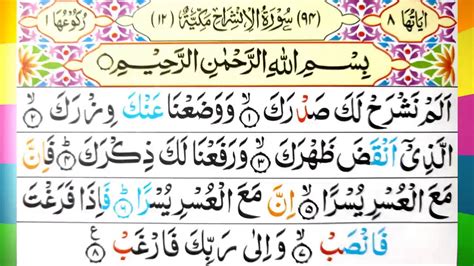 اٰیَاتُهَا ۸ (۹۴) سُوْرَةُ الْاِنْشِرَاحِ مَكِّيَّةٌ (۱۲) رُكُوْعُهَا ۱
بِسْمِ اللّٰهِ الرَّحْمٰنِ الرَّحِيْمِ
اَلَمْ نَشْرَحْ لَكَ صَدْرَكَ ۙ۱ وَوَضَعْنَا عَنْكَ وِزْرَكَ ۙ۲
الَّذِیْۤ اَنْقَضَ ظَهْرَكَ ۙ۳ وَرَفَعْنَا لَكَ ذِكْرَكَ ؕ۴ فَاِنَّ
مَعَ الْعُسْرِ یُسْرًا ۙ۵ اِنَّ مَعَ الْعُسْرِ یُسْرًا ؕ۶ فَاِذَا فَرَغْتَ
فَانْصَبْ ۙ۷ وَاِلٰی رَبِّكَ فَارْغَبْ ۸ ع